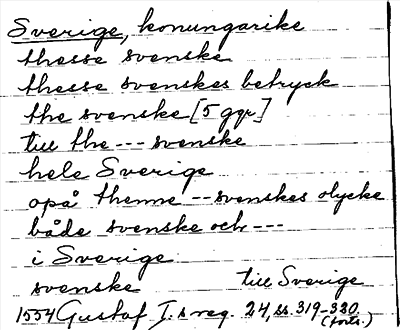 Sverige, konungarike
thesse svenske
thesse svenskes betryck
the svenske [5 ggr]
till the --- svenske
hele Sverige
opå thenne -- svenskes olycke
både svenske och ---
i Sverige
svenske till Sverige
1554 Gustaf I:s reg. 24, ss. 319-330
(forts.)